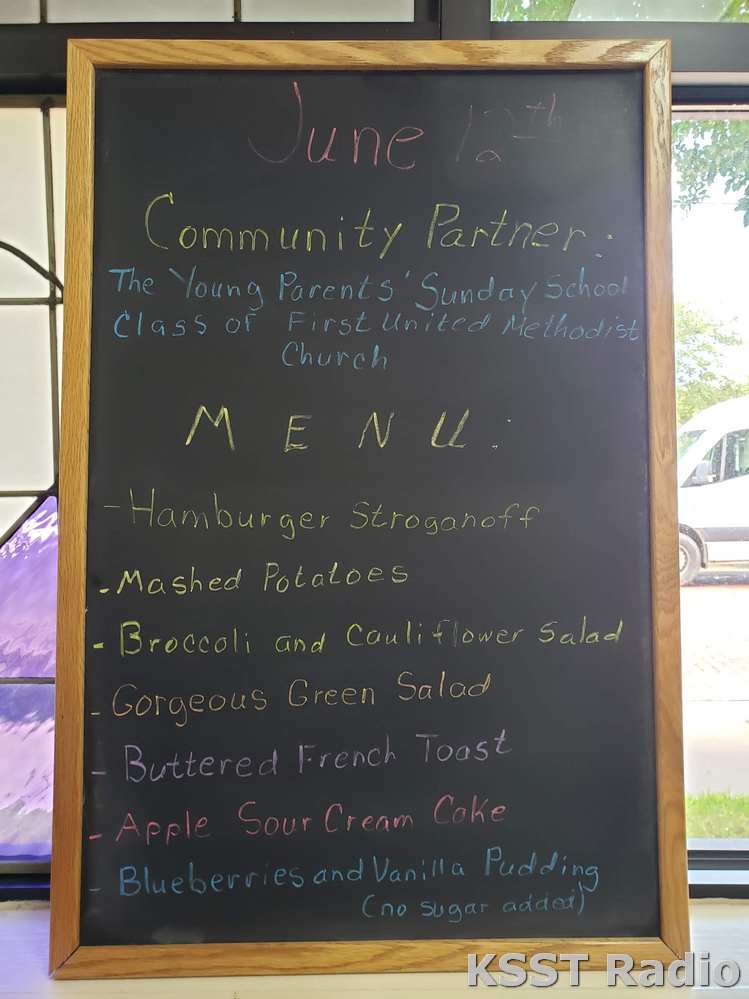 June 12th
Community Partner:
The Young Parents' Sunday School
Class of First United Methodist
Church
MENU:
- Hamburger Stroganoff
- Mashed Potatoes
- Broccoli and Cauliflower Salad
- Gorgeous Green Salad
- Buttered French Toast
- Apple Sour Cream Cake
- Blueberries and Vanilla Pudding
(no sugar added)
KSST Radio